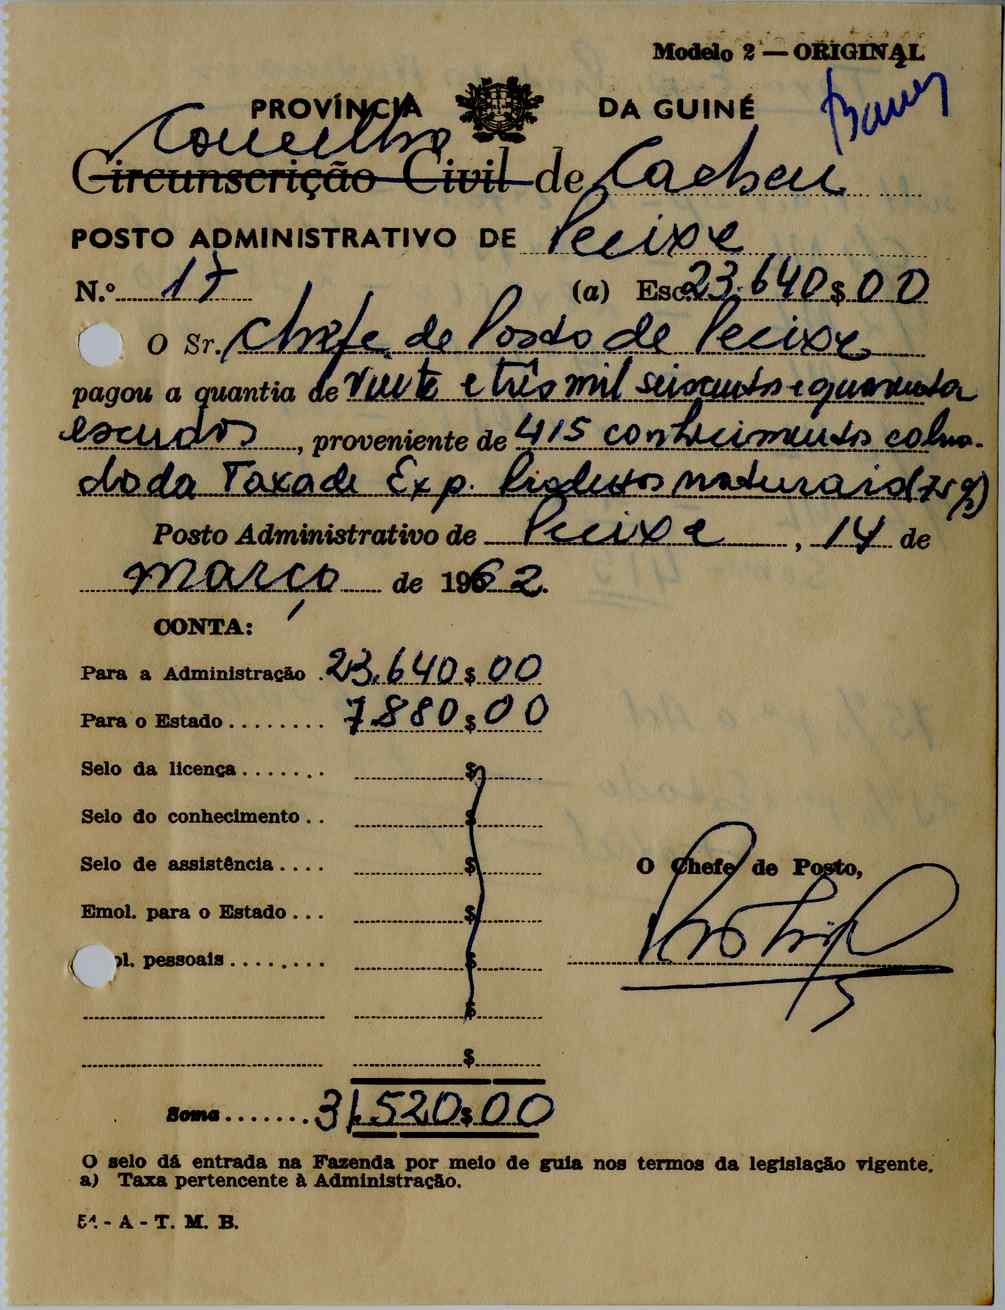 Modelo 2 — ORIGINAL
PROVÍNCIA DA GUINÉ
Concelho
Circunscrição Civil de Cacheu
POSTO ADMINISTRATIVO DE Pecixe
N.º 17 (a) Esc. 23.640$00
O Sr. Chefe de Posto de Pecixe
pagou a quantia de vinte e três mil seiscentos e quarenta
escudos, proveniente de 415 conhecimentos cobra-
do da Taxa de Exp. Produtos naturais (75%)
Posto Administrativo de Pecixe, 14 de
março de 1962.
CONTA:
Para a Administração . 23.640$00
Para o Estado ........ 7.880$00
Selo da licença ....... $
Selo do conhecimento .. $
Selo de assistência .... $
O Chefe de Posto,
Emol. para o Estado ... $
ol. pessoais ........ $
$
$
Soma ....... 31.520$00
O selo dá entrada na Fazenda por meio de guia nos termos da legislação vigente.
a) Taxa pertencente à Administração.
- A - T. M. B.